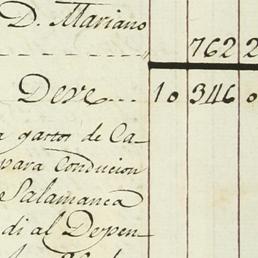 D. Mariano
762 2
Deve... 10 346 0
gastos de Ca-
para Conducion
Salamanca
di al Depen-